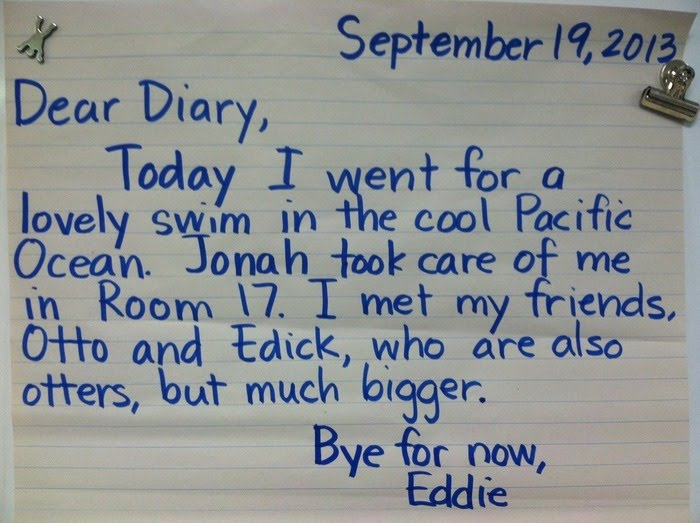 September 19, 2013
Dear Diary,
Today I went for a
lovely swim in the cool Pacific
Ocean. Jonah took care of me
in Room 17. I met my friends,
Otto and Edick, who are also
otters, but much bigger.
Bye for now,
Eddie